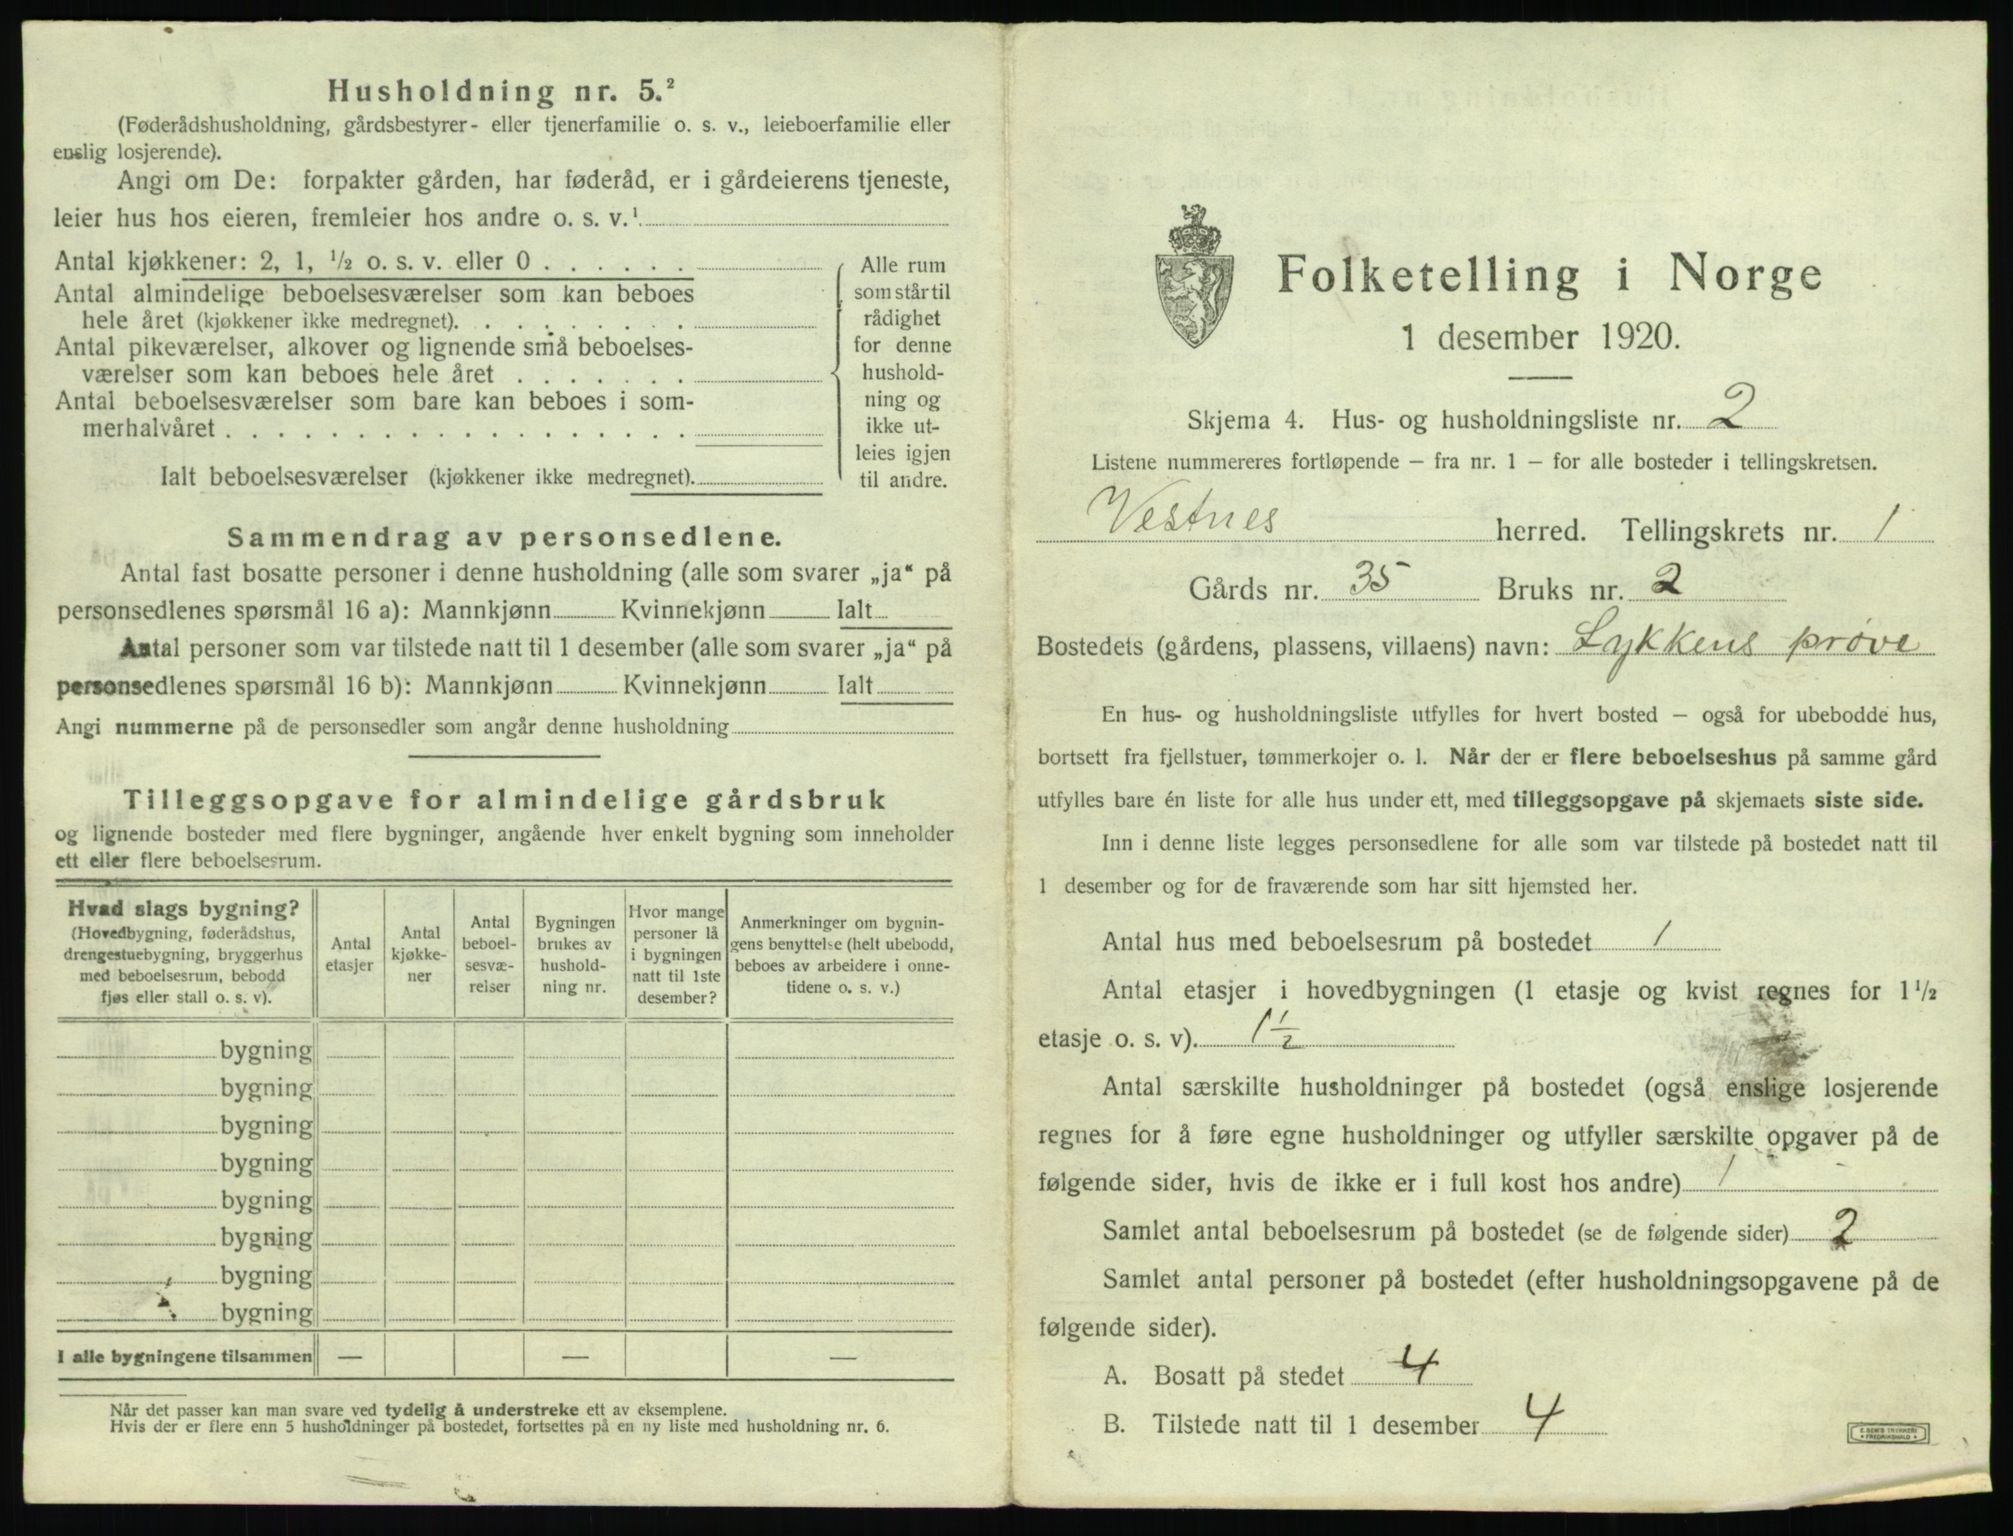 Husholdning nr. 5.²
(Føderådshusholdning, gårdsbestyrer- eller tjenerfamilie o. s. v., leieboerfamilie eller
enslig losjerende).
Angi om De: forpakter gården, har føderåd, er i gårdeierens tjeneste,
leier hus hos eieren, fremleier hos andre o. s. v.¹
Antal kjøkkener: 2, 1, ½ o. s. v. eller 0 . . . . . .
Antal almindelige beboelsesværelser som kan beboes
hele året (kjøkkener ikke medregnet). . . . . . . . .
Antal pikeværelser, alkover og lignende små beboelses-
værelser som kan beboes hele året . . . . . . .
Antal beboelsesværelser som bare kan beboes i som-
merhalvåret . . . . . . . . . . . . . . . . . .
Ialt beboelsesværelser (kjøkkener ikke medregnet).
Alle rum
som står til
rådighet
for denne
hushold-
ning og
ikke ut-
leies igjen
til andre.
Sammendrag av personsedlene.
Antal fast bosatte personer i denne husholdning (alle som svarer „ja“ på
personsedlenes spørsmål 16 a): Mannkjønn Kvinnekjønn Ialt
Antal personer som var tilstede natt til 1 desember (alle som svarer „ja“ på
personsedlenes spørsmål 16 b): Mannkjønn Kvinnekjønn Ialt
Angi nummerne på de personsedler som angår denne husholdning
Tilleggsopgave for almindelige gårdsbruk
og lignende bosteder med flere bygninger, angående hver enkelt bygning som inneholder
ett eller flere beboelsesrum.
Hvad slags bygning?
(Hovedbygning, føderådshus,
drengestuebygning, bryggerhus
med beboelsesrum, bebodd
fjøs eller stall o. s. v).
Antal
etasjer
Antal
kjøkke-
ner
Antal
beboel-
sesvæ-
relser
Bygningen
brukes av
hushold-
ning nr.
Hvor mange
personer lå
i bygningen
natt til 1ste
desember?
Anmerkninger om bygnin-
gens benyttelse (helt ubebodd,
beboes av arbeidere i onne-
tidene o. s. v.)
bygning
bygning
bygning
bygning
bygning
bygning
bygning
bygning
I alle bygningene tilsammen — — —
Når det passer kan man svare ved tydelig å understreke ett av eksemplene.
Hvis der er flere enn 5 husholdninger på bostedet, fortsettes på en ny liste med husholdning nr. 6.
Folketelling i Norge
1 desember 1920.
Skjema 4. Hus- og husholdningsliste nr. 2
Listene nummereres fortløpende – fra nr. 1 – for alle bosteder i tellingskretsen.
Vestnes herred. Tellingskrets nr. 1
Gårds nr. 35 Bruks nr. 2
Bostedets (gårdens, plassens, villaens) navn: Lykkens prøve
En hus- og husholdningsliste utfylles for hvert bosted – også for ubebodde hus,
bortsett fra fjellstuer, tømmerkojer o. l. Når der er flere beboelseshus på samme gård
utfylles bare én liste for alle hus under ett, med tilleggsopgave på skjemaets siste side.
Inn i denne liste legges personsedlene for alle som var tilstede på bostedet natt til
1 desember og for de fraværende som har sitt hjemsted her.
Antal hus med beboelsesrum på bostedet 1
Antal etasjer i hovedbygningen (1 etasje og kvist regnes for 1½
etasje o. s. v). 1½
Antal særskilte husholdninger på bostedet (også enslige losjerende
regnes for å føre egne husholdninger og utfyller særskilte opgaver på de
følgende sider, hvis de ikke er i full kost hos andre) 1
Samlet antal beboelsesrum på bostedet (se de følgende sider) 2
Samlet antal personer på bostedet (efter husholdningsopgavene på de
følgende sider).
A. Bosatt på stedet 4
B. Tilstede natt til 1 desember 4
E. SEM'S TRYKKERI
FREDRIKSHALD